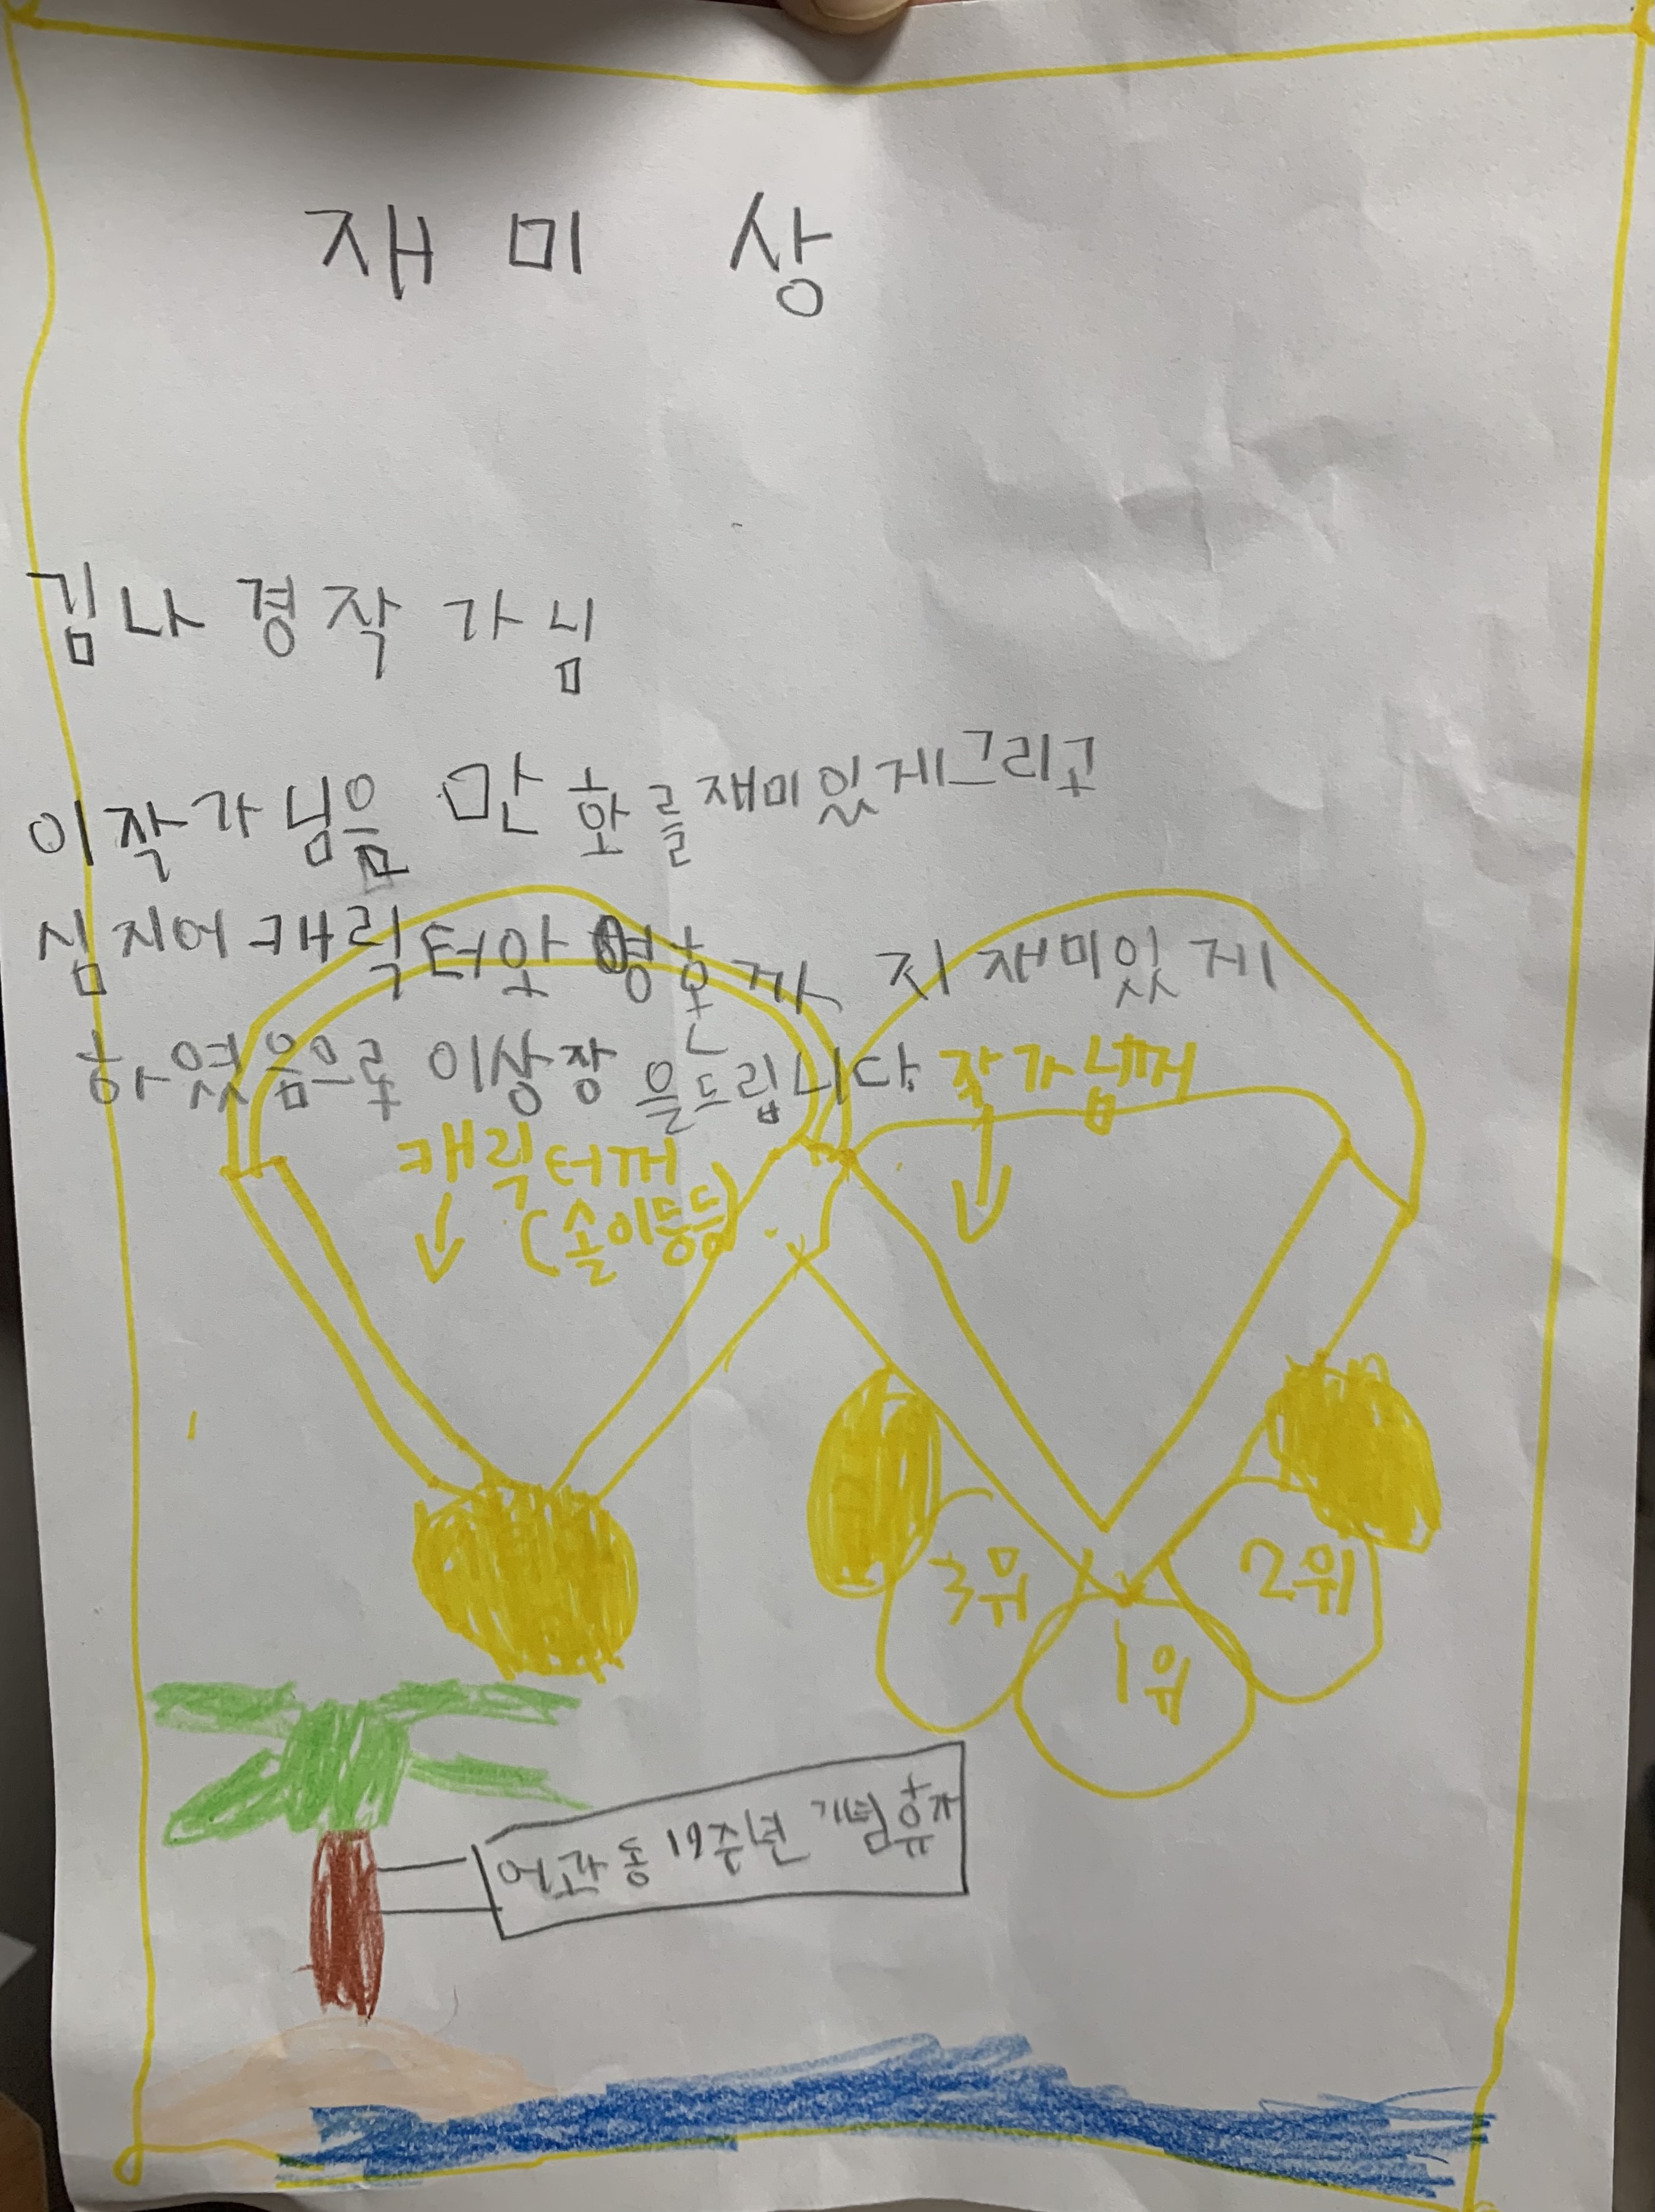 재미상
김나경작가님
이작가님음 만화를재미있게그리고
심지어캐릭터와 영혼까지재미있게
하였음으로 이상장을드립니다.
작가님꺼
캐릭터꺼
(솔이등등)
3위
2위
1위
어과동19주년기념휴가